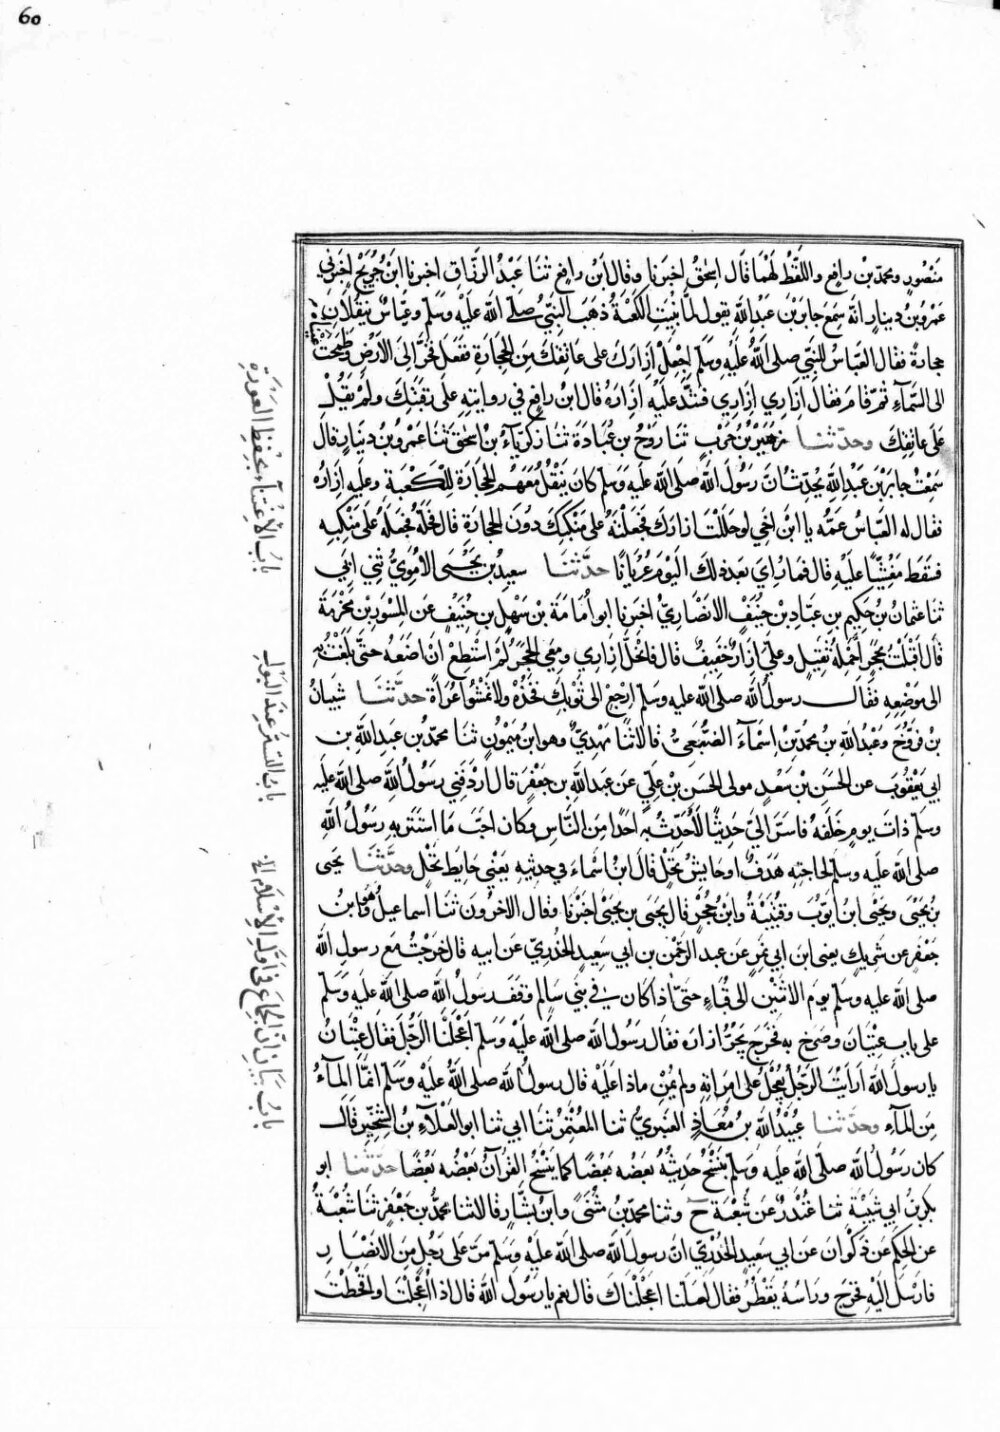 60
منصور ومحمد بن رافع واللفظ لهما قال اسحق اخبرنا وقال ابن رافع ثنا عبد الرزاق اخبرنا ابن جريج اخبرني
عمرو بن دينار انه سمع جابر بن عبد الله يقول لما بنيت الكعبة ذهب النبي صلى الله عليه وسلم وعباس ينقلان
حجارة فقال العباس للنبي صلى الله عليه وسلم اجعل ازارك على عاتقك من الحجارة ففعل فخر الى الارض وطمحت
الى السماء ثم قام فقال ازاري ازاري فشد عليه ازاره قال ابن رافع في روايته على رقبتك ولم يقل
على عاتقك وحدثنا زهير بن حرب ثنا روح بن عبادة ثنا زكرياء بن اسحق ثنا عمرو بن دينار قال
سمعت جابر بن عبد الله يحدث ان رسول الله صلى الله عليه وسلم كان ينقل معهم الحجارة للكعبة وعليه ازاره
فقال له العباس عمه يا ابن اخي لو حللت ازارك فجعلته على منكبك دون الحجارة قال فحله فجعله على منكبه
فسقط مغشيا عليه قال فما راي بعد ذلك اليوم عريانا حدثنا سعيد بن يحيى الاموي ثني ابي
ثنا عثمان بن حكيم بن عباد بن حنيف الانصاري اخبرنا ابو امامة بن سهل بن حنيف عن المسور بن مخرمة
قال اقبلت بحجر احمله ثقيل وعلي ازار خفيف قال فانحل ازاري ومعي الحجر لم استطع ان اضعه حتى بلغت به
الى موضعه فقال رسول الله صلى الله عليه وسلم ارجع الى ثوبك فخذه ولا تمشوا عراة حدثنا شيبان
بن فروخ وعبد الله بن محمد بن اسماء الضبعي قالا ثنا مهدي وهو ابن ميمون ثنا محمد بن عبد الله بن
ابي يعقوب عن الحسن بن سعد مولى الحسن بن علي عن عبد الله بن جعفر قال اردفني رسول الله صلى الله عليه
وسلم ذات يوم خلفه فاسر الي حديثا لا احدث به احدا من الناس وكان احب ما استتر به رسول الله
صلى الله عليه وسلم لحاجته هدف او حايش نخل قال ابن اسماء في حديثه يعني حايط نخل وحدثنا يحيى
بن يحيى ويحيى ابن ايوب وقتيبة وابن حجر قال يحيى بن يحيى اخبرنا وقال الاخرون ثنا اسماعيل وهو ابن
جعفر عن شريك يعني ابن ابي نمر عن عبد الرحمن بن ابي سعيد الخدري عن ابيه قال خرجت مع رسول الله
صلى الله عليه وسلم يوم الاثنين الى قباء حتى اذا كان في بني سالم وقف رسول الله صلى الله عليه وسلم
على باب عتبان وصرخ به فخرج يجر ازاره فقال رسول الله صلى الله عليه وسلم اعجلنا الرجل فقال عتبان
يا رسول الله ارايت الرجل يعجل على امراته ولم يمن ماذا عليه قال رسول الله صلى الله عليه وسلم انما الماء
من الماء وحدثنا عبيد الله بن معاذ العنبري ثنا المعتمر ثنا ابي ثنا ابو العلاء بن الشخير قال
كان رسول الله صلى الله عليه وسلم ينسخ حديثه بعضه بعضا كما ينسخ القرآن بعضه بعضا حدثنا ابو
بكر بن ابي شيبة ثنا غندر عن شعبة ح وثنا محمد بن مثنى وابن بشار قالا ثنا محمد بن جعفر ثنا شعبة
عن الحكم عن ذكوان عن ابي سعيد الخدري ان رسول الله صلى الله عليه وسلم مر على رجل من الانصار
فارسل اليه فخرج وراسه يقطر فقال لعلنا اعجلناك قال نعم يا رسول الله قال اذا اعجلت او اقحطت
باب الاعتناء بحفظ العورة
باب التستر عند البول
باب بيان ان الجماع في اول الاسلام الخ